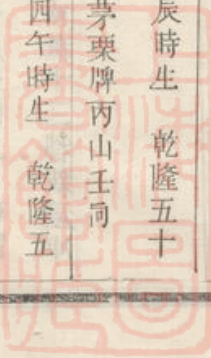 辰時生　乾隆五十
茅栗牌丙山壬向
四午時生　乾隆五